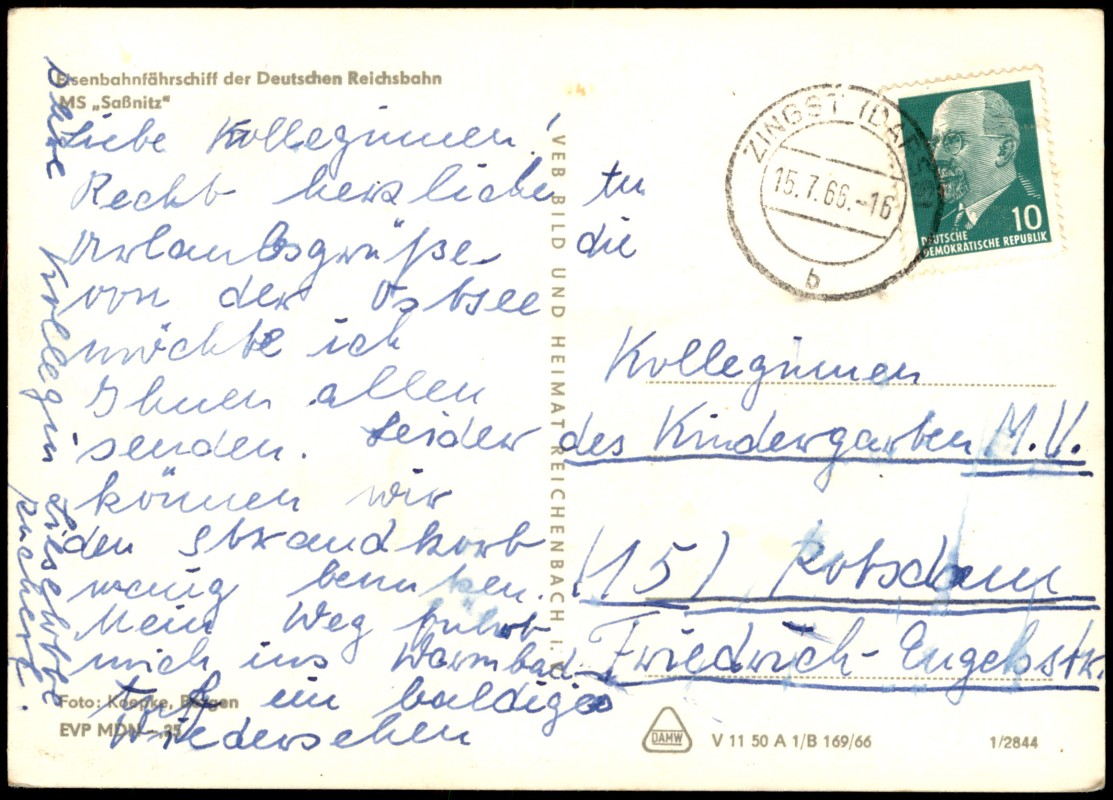 Eisenbahnfährschiff der Deutschen Reichsbahn
MS „Saßnitz“
Liebe Kolleginnen!
Recht herzliche
Urlaubsgrüße
von der Ostsee
möchte ich
Ihnen allen
senden. Leider
können wir
den Strandkorb
wenig benutzen.
Mein Weg führt
mich ins Warmbad
Auf ein baldiges
Wiedersehen
Kollegin Liselotte
Foto: Koepke, Bergen
EVP MDN –,25
VEB BILD UND HEIMAT REICHENBACH i. V.
ZINGST (DARSS)
15.7.66.-16
b
10
DEUTSCHE
DEMOKRATISCHE REPUBLIK
An
die
Kolleginnen
des Kindergarten M.V.
(15) Potsdam
Friedrich-Engelsstr.
DAMW
V 11 50 A 1/B 169/66
1/2844